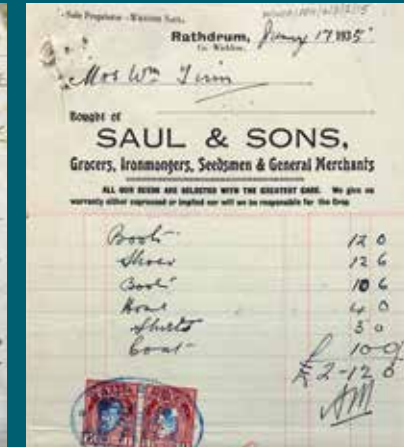 Sole Proprietor - William Saul.
Rathdrum, 17 1935
Co. Wicklow.
Mrs Wm
Bought of
SAUL & SONS,
Grocers, Ironmongers, Seedsmen & General Merchants
ALL OUR SEEDS ARE SELECTED WITH THE GREATEST CARE. We give no
warranty either expressed or implied nor will we be responsible for the Crop.
Boots 12 0
Shoes 12 6
Boots 10 6
4 0
Shirts 3 0
Coat 10 0
£ 2-12 0